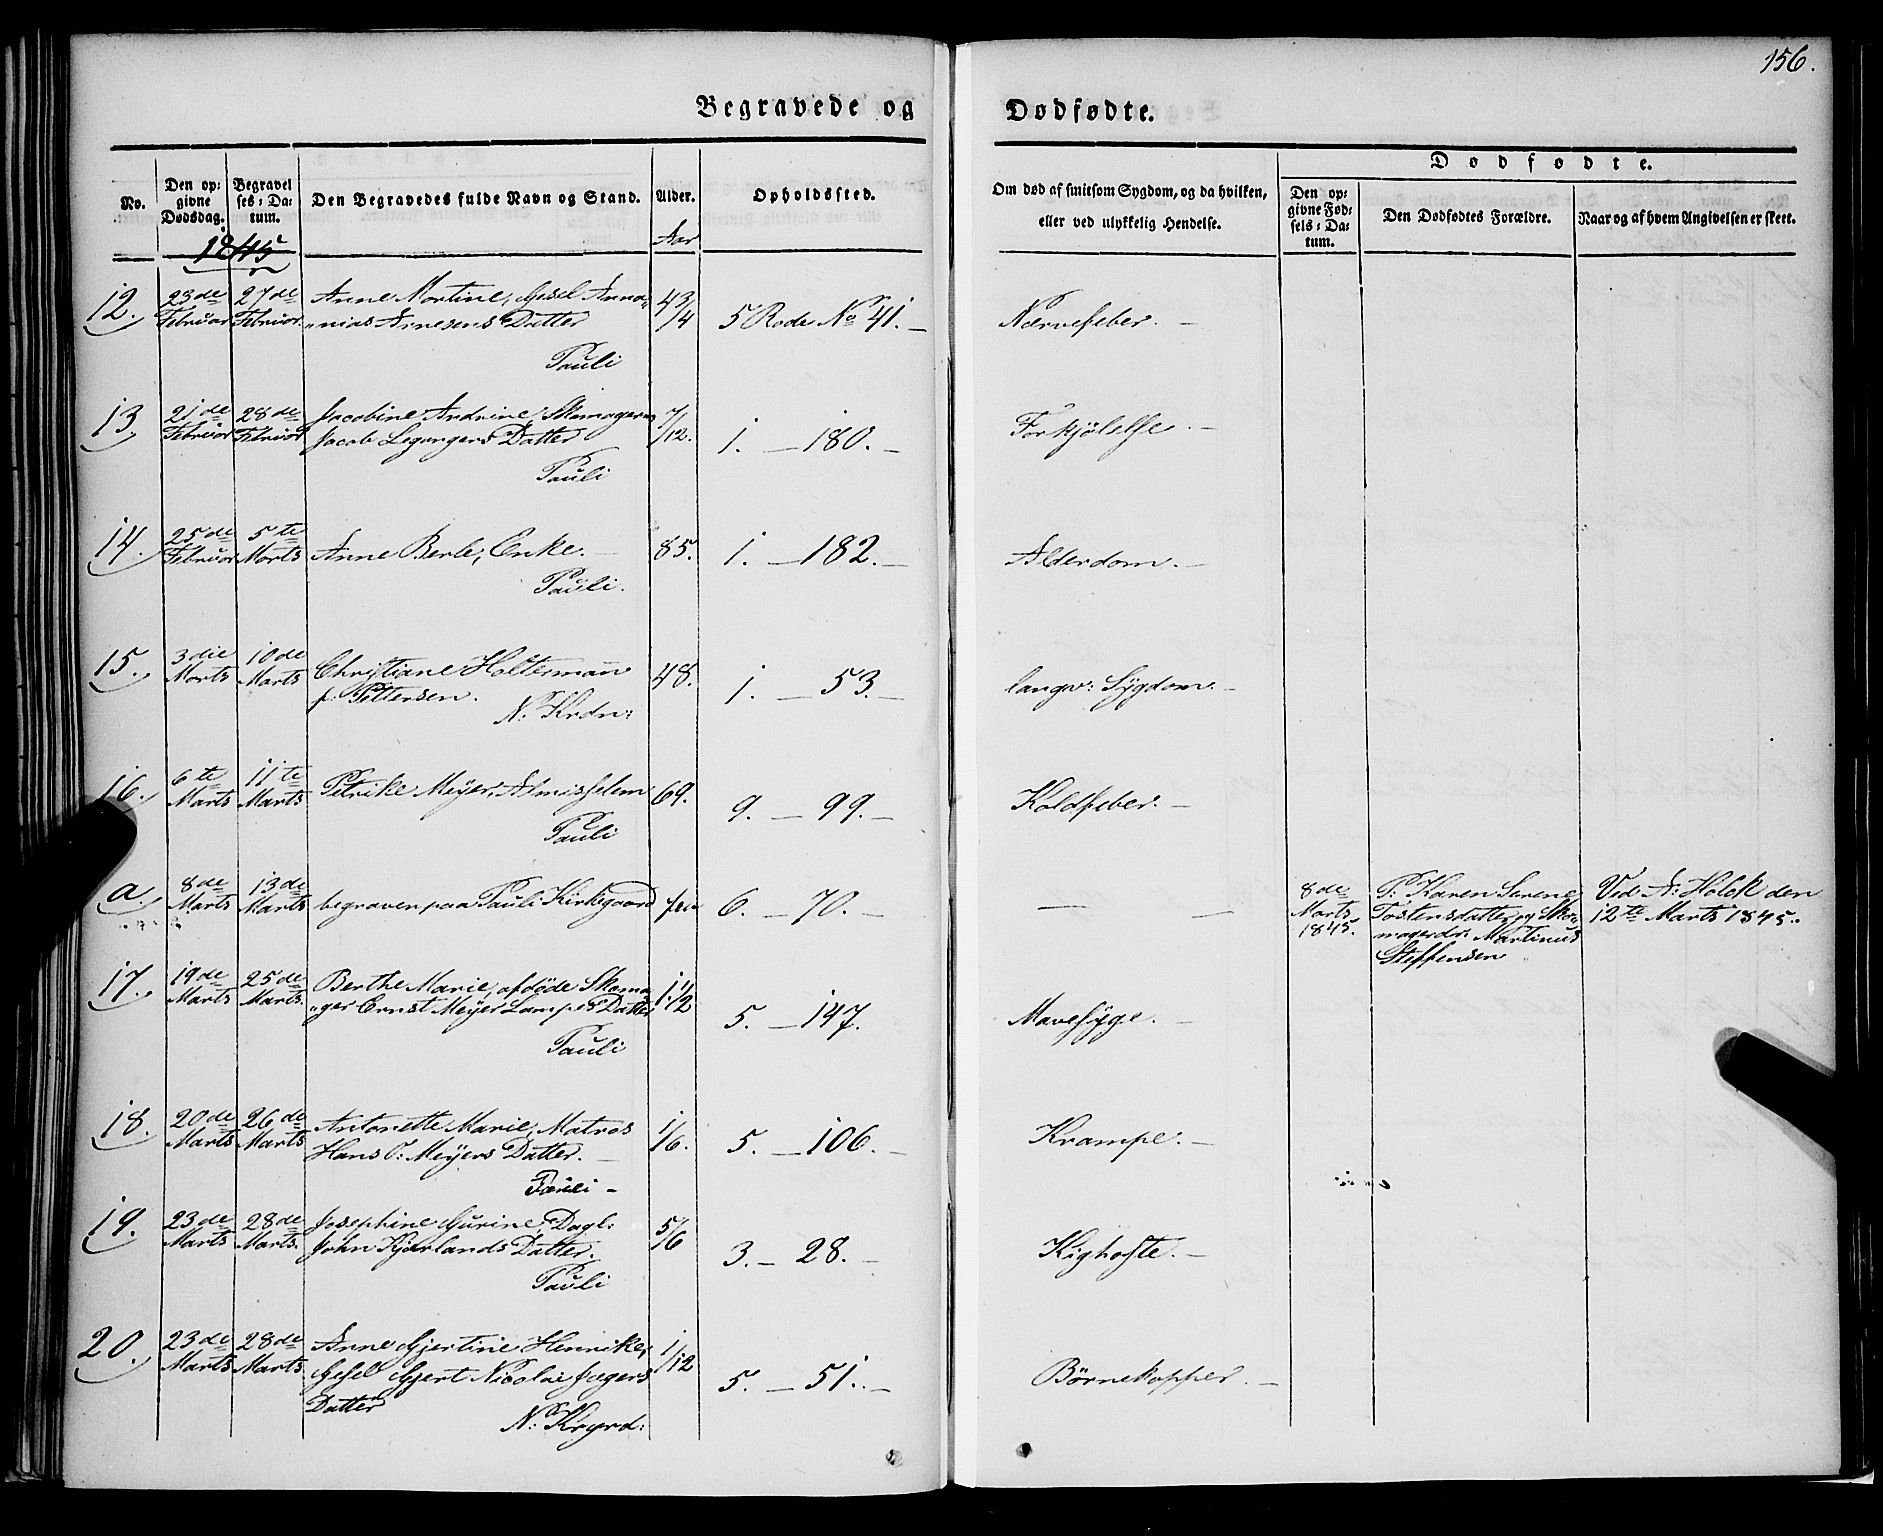 156.
Begravede og Dødfødte.
No.
Den op-
givne
Dødsdag.
Begravel
ses-Da-
tum.
Den Begravedes fulde Navn og Stand.
Alder.
Opholdssted.
Om død af smitsom Sygdom, og da hvilken,
eller ved ulykkelig Hendelse.
Dødfødte.
Den op-
givne Fød-
sels-Da-
tum.
Den Dødfødtes Forældre.
Naar og af hvem Angivelsen er skeet.
1845
Aar
12. 23de Februar 27de Februar Anne Martine, Gesel Anna-
nias Arnesens Datter 43/4 5 Rode No 41. — Nervefeber. —
Pauli
13 21de Februar 28de Februar Jacobine Andrine, Skomager
Jacob Legangers Datter 7/12. 1. — 180. — Forkjølelse. —
Pauli
14. 25de Februar 5te Marts Anne Berle, Enke. — 85. 1. — 182. — Alderdom. —
Pauli.
15. 3die Marts 10de Marts Christiane Holtermann
f. Pettersen. 48. 1. — 53. — langv: Sygdom. —
N: Krdn:
16. 6te Marts 11te Marts Petrike Meyer, Almisselem 69. 9. — 99. — Koldfeber. —
Pauli
a. 8de Marts 13de Marts begraven paa Pauli Kirkegaard fri 6. — 70. — — —
8de
Marts
1845.
P: Karen Serene
Tostensdatter og Sko-
magerdr: Martinus
Steffensen
Ved A: Holck den
12te Marts 1845.
17. 19de Marts 25de Marts Berthe Marie, afdöde Skoma-
ger Ernst Meyer Lampes Datter 1 1/2 5. — 147. Mavesyge. —
Pauli
18. 20de Marts 26de Marts Antonette Marie, Matros
Hans O: Meyers Datter. — 1/6. 5. — 106. — Krampe. —
Pauli —
19. 23de Marts 28de Marts. Josephine Gurine, Dagl:
John Kjørlands Datter. 5/6 3. — 28. — Kighoste. —
Pauli
20. 23de Marts 28de Marts. Anne Gjertine Henrike,
Gesel Gjert Nicolai Jægers
Datter 1/12 5. — 51. — Börnekopper. —
N: Krgrd: